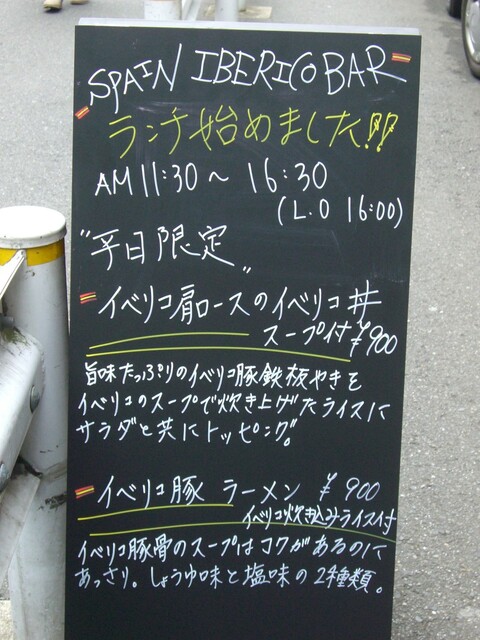 SPAIN IBERICO BAR
ランチ始めました!!
AM 11:30〜16:30
(L.O 16:00)
"平日限定"
イベリコ肩ロースのイベリコ丼
スープ付 ¥900
旨味たっぷりのイベリコ豚鉄板やきを
イベリコのスープで炊き上げたライスに
サラダと共にトッピング。
イベリコ豚 ラーメン ¥900
イベリコ炊き込みライス付
イベリコ豚骨のスープはコクがあるのに
あっさり。しょうゆ味と塩味の2種類。